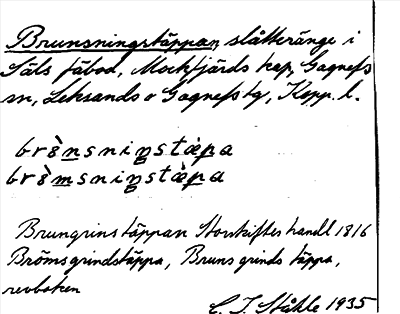 Brunsningstäppan, slåtteränge i
Säls fäbod, Mockfjärds kap, Gagnefs
sn, Leksands o Gagnefs tg, Kopp. l.
brò̱nsniŋstæ̀pa
brò̱msniŋstæ̀pa
Brungrinstäppan Storskifteshandl 1816
Brömsgrindstäppa, Brunsgrinds täppa,
revboken
E. I. Ståhle 1935